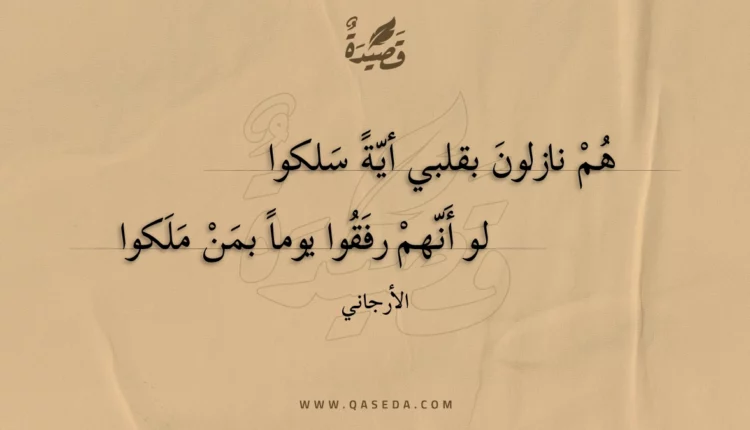 قَصِيدَةٌ
هُمْ نازلونَ بقلبي أيّةً سَلكوا
لو أَنّهمْ رفَقُوا يوماً بمَنْ مَلَكوا
الأرجاني
WWW.QASEDA.COM